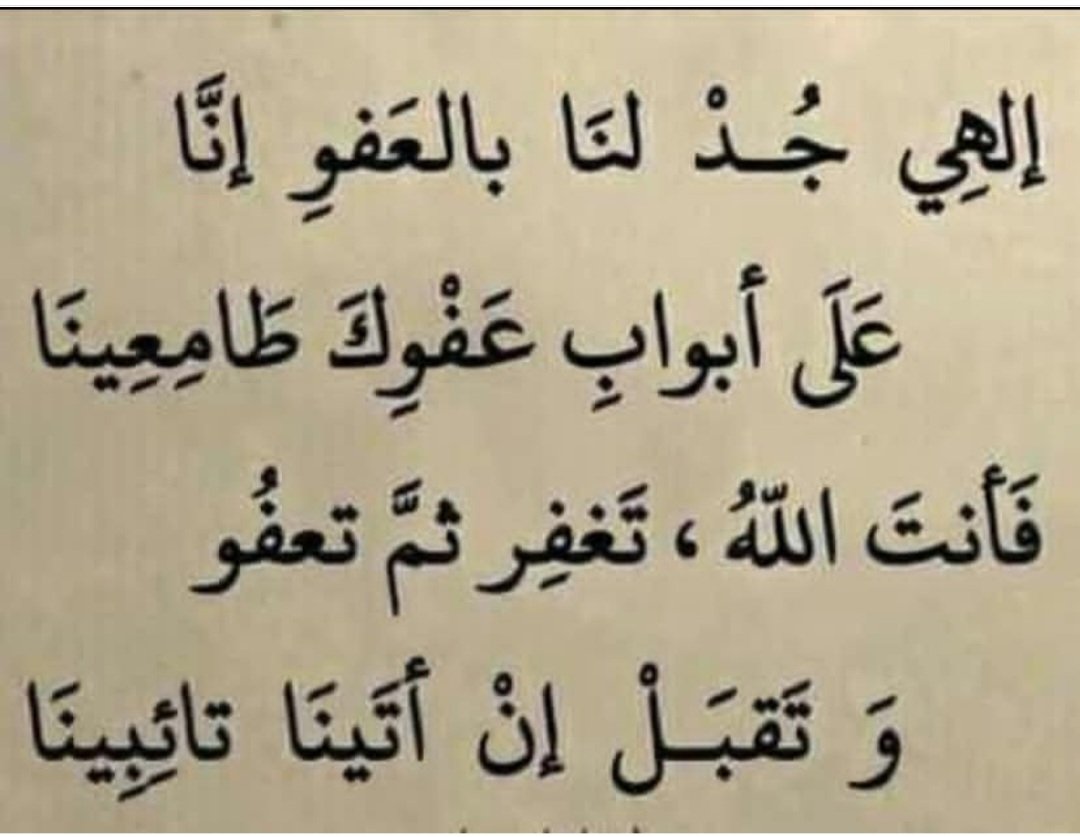 إلهِي جُـدْ لنَا بالعَفوِ إنَّا
عَلَى أبوابِ عَفْوِكَ طَامِعِينَا
فَأنتَ اللّهُ ، تَغفِر ثمَّ تعفُو
وَ تَقبَـلْ إنْ أتَينَا تائِبِينَا